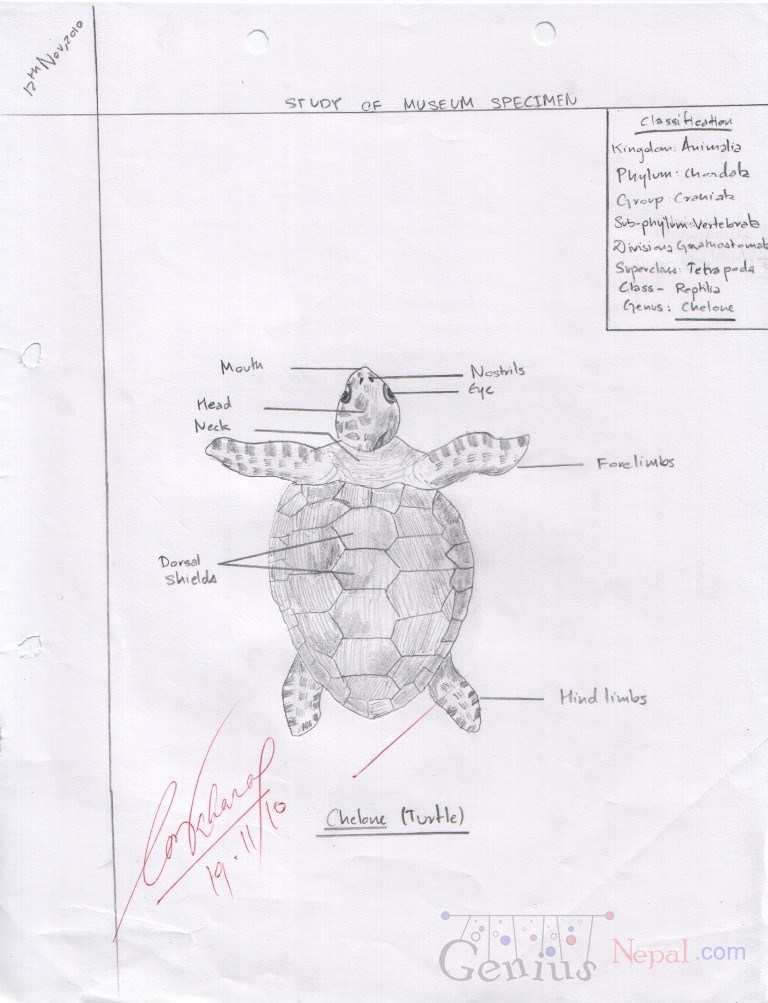 12th Nov, 2010
STUDY OF MUSEUM SPECIMEN
Classification
Kingdom: Animalia
Phylum: Chordata
Group: Craniata
Sub-phylum: Vertebrata
Division: Gnathostomat
Superclass: Tetrapoda
Class - Reptilia
Genus: Chelone
Mouth
Nostrils
Eye
Head
Neck
Forelimbs
Dorsal
Shields
Hind limbs
Chelone (Turtle)
19.11/10
Genius Nepal.com